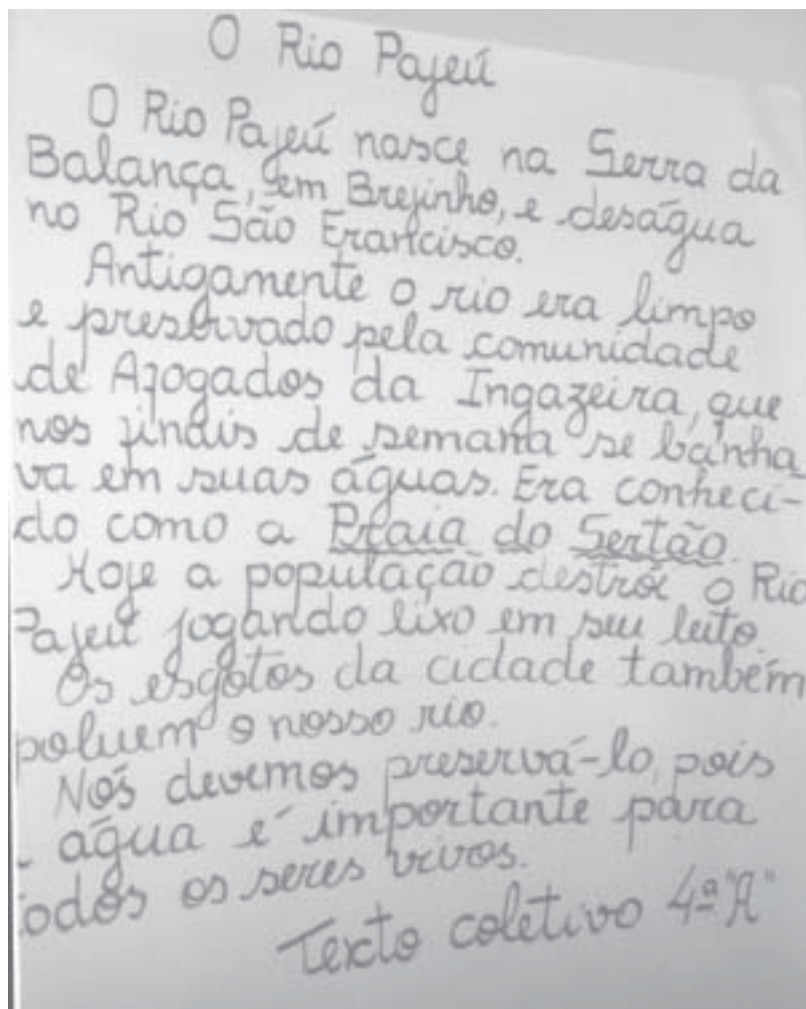 O Rio Pajeú
O Rio Pajeú nasce na Serra da
Balança, em Brejinho, e deságua
no Rio São Francisco.
Antigamente o rio era limpo
e preservado pela comunidade
de Afogados da Ingazeira, que
nos finais de semana se banha
va em suas águas. Era conheci-
do como a Praia do Sertão.
Hoje a população destrói o Rio
Pajeú jogando lixo em seu leito.
Os esgotos da cidade também
poluem o nosso rio.
Nós devemos preservá-lo, pois
a água é importante para
todos os seres vivos.
Texto coletivo 4ª "A"